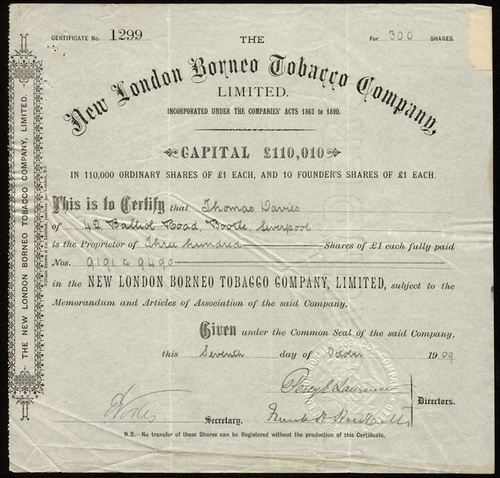 CERTIFICATE No. 1299
For 300 SHARES.
THE
New London Borneo Tobacco Company,
LIMITED.
INCORPORATED UNDER THE COMPANIES' ACTS 1862 to 1890.
CAPITAL £110,010
IN 110,000 ORDINARY SHARES OF £1 EACH, AND 10 FOUNDER'S SHARES OF £1 EACH.
This is to Certify that Thomas Davies
of 42 Road Bootle Liverpool
is the Proprietor of Three hundred Shares of £1 each fully paid
Nos. 9191 @ 9490
in the NEW LONDON BORNEO TOBACCO COMPANY, LIMITED, subject to the
Memorandum and Articles of Association of the said Company.
Given under the Common Seal of the said Company,
this Seventh day of October 1909
Percy Lawrence
Directors.
Secretary.
Frank
N.B.—No transfer of these Shares can be Registered without the production of this Certificate.
THE NEW LONDON BORNEO TOBACCO COMPANY, LIMITED.